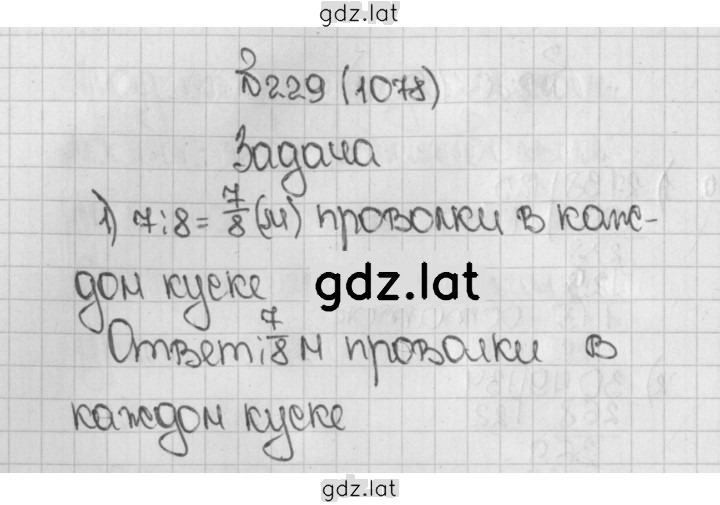 gdz.lat
№229 (1078)
Задача
1) 7:8=7/8(м) проволки в каж-
дом куске
gdz.lat
Ответ: 7/8 м проволки в
каждом куске
gdz.lat